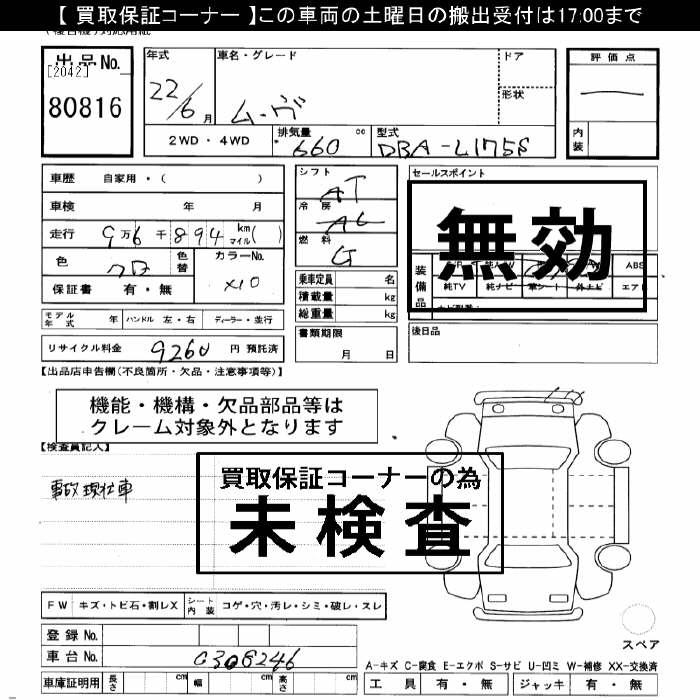 【 買取保証コーナー 】この車両の土曜日の搬出受付は17:00まで
出品No.
[2042]
80816
年式 22/6月
車名・グレード ムーヴ
ドア
形状
評価点
内装
2WD ・ 4WD
排気量 660 cc
型式 DBA-L175S
車歴 自家用・( )
車検 年 月
走行 9万6千894 km マイル( )
色 クロ 色替
カラーNo. X10
保証書 有・無
シフト AT
冷房 AC
燃料 G
乗車定員 名
積載量 kg
総重量 kg
書類期限 月 日
セールスポイント
無効
装備品
ABS
純TV 純ナビ 革シート 外ナビ エアB
後日品
モデル年式 年 ハンドル 左・右 ディーラー・並行
リサイクル料金 9260 円 預託済
【出品店申告欄(不良箇所・欠品・注意事項等)】
機能・機構・欠品部品等は
クレーム対象外となります
【検査員記入】
事故現状車
買取保証コーナーの為
未検査
FW キズ・トビ石・割レX シート内装 コゲ・穴・汚レ・シミ・破レ・スレ
登録 No.
車台 No. 0308246
車庫証明用 長さ cm 幅 cm 高さ cm
スペア
A-キズ C-腐食 E-エクボ S-サビ U-凹ミ W-補修 XX-交換済
工具 有・無 ジャッキ 有・無